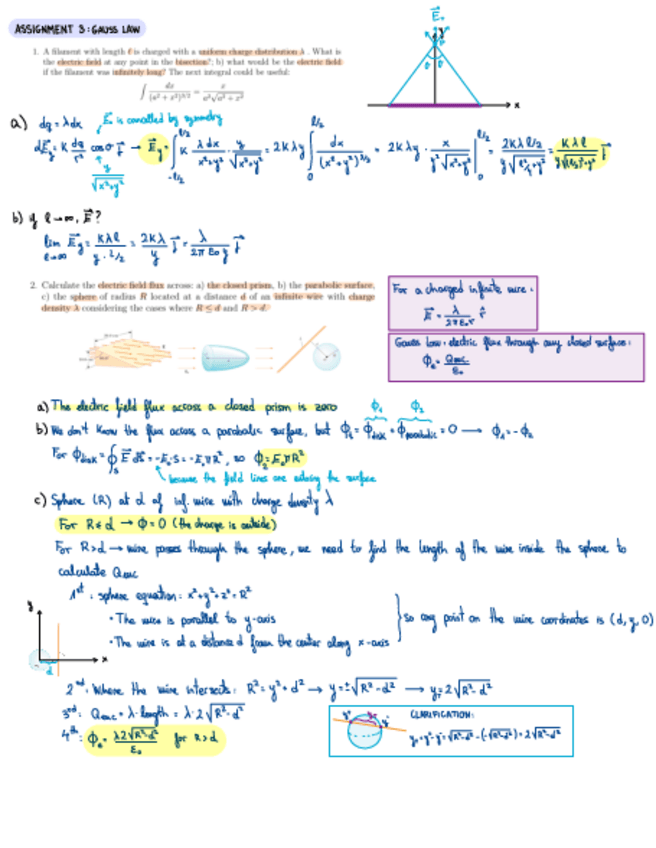 ASSIGNMENT 3: GAUSS LAW
1. A filament with length ℓ is charged with a uniform charge distribution λ. What is
the electric field at any point in the bisection?; b) what would be the electric field
if the filament was infinitely long? The next integral could be useful:
∫ dx/(a² + x²)^{3/2} = x/(a²√(a² + x²))
E⃗
y
x
a) dq = λdx
E⃗ is cancelled by symmetry
b) if ℓ→∞, E⃗?
lim E⃗y = Kλℓ/(y·ℓ/2) = 2Kλ/y j⃗ = λ/(2πε₀y) j⃗
ℓ→∞
2. Calculate the electric field flux across: a) the closed prism, b) the parabolic surface,
c) the sphere of radius R located at a distance d of an infinite wire with charge
density λ considering the cases where R ≤ d and R > d.
For a charged infinite wire:
E⃗ = λ/(2πε₀r) r̂
Gauss Law: electric flux through any closed surface:
Φₑ = Qenc/ε₀
a) The electric field flux across a closed prism is zero
Φ₁ Φ₂
b) We don't know the flux across a parabolic surface, but Φₜ = Φdisk + Φparabolic = 0 → Φ₁ = -Φ₂
For Φdisk = ∮ₛ E⃗ dS⃗ = -E₀·S = -E₀πR², so Φ₂ = E₀πR²
because the field lines are entering the surface
c) Sphere (R) at d of inf. wire with charge density λ
For R≤d → Φ=0 (the charge is outside)
For R>d → wire passes through the sphere, we need to find the length of the wire inside the sphere to
calculate Qenc
1st: sphere equation: x²+y²+z² = R²
• The wire is parallel to y-axis
• The wire is at a distance d from the center along x-axis
so any point on the wire coordinates is (d, y, 0)
y
x
d
2nd: Where the wire intersects: R² = y² + d² → y = ±√(R²-d²) → y = 2√(R²-d²)
3rd: Qenc = λ·length = λ·2√(R²-d²)
4th: Φₑ = λ2√(R²-d²)/ε₀ for R>d
CLARIFICATION:
y₀ = y⁺-y⁻ = √(R²-d²) - (-√(R²-d²)) = 2√(R²-d²)